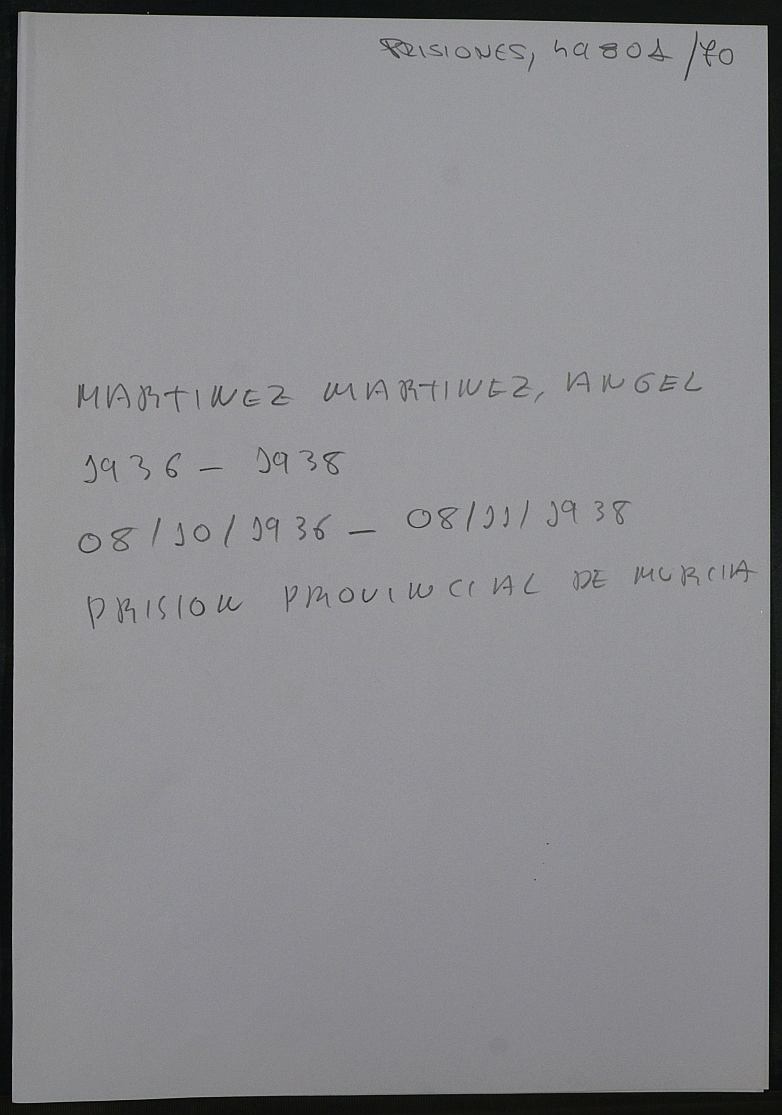 PRISIONES, 49801/70
MARTINEZ MARTINEZ, ANGEL
1936 - 1938
08/10/1936 - 08/11/1938
PRISION PROVINCIAL DE MURCIA